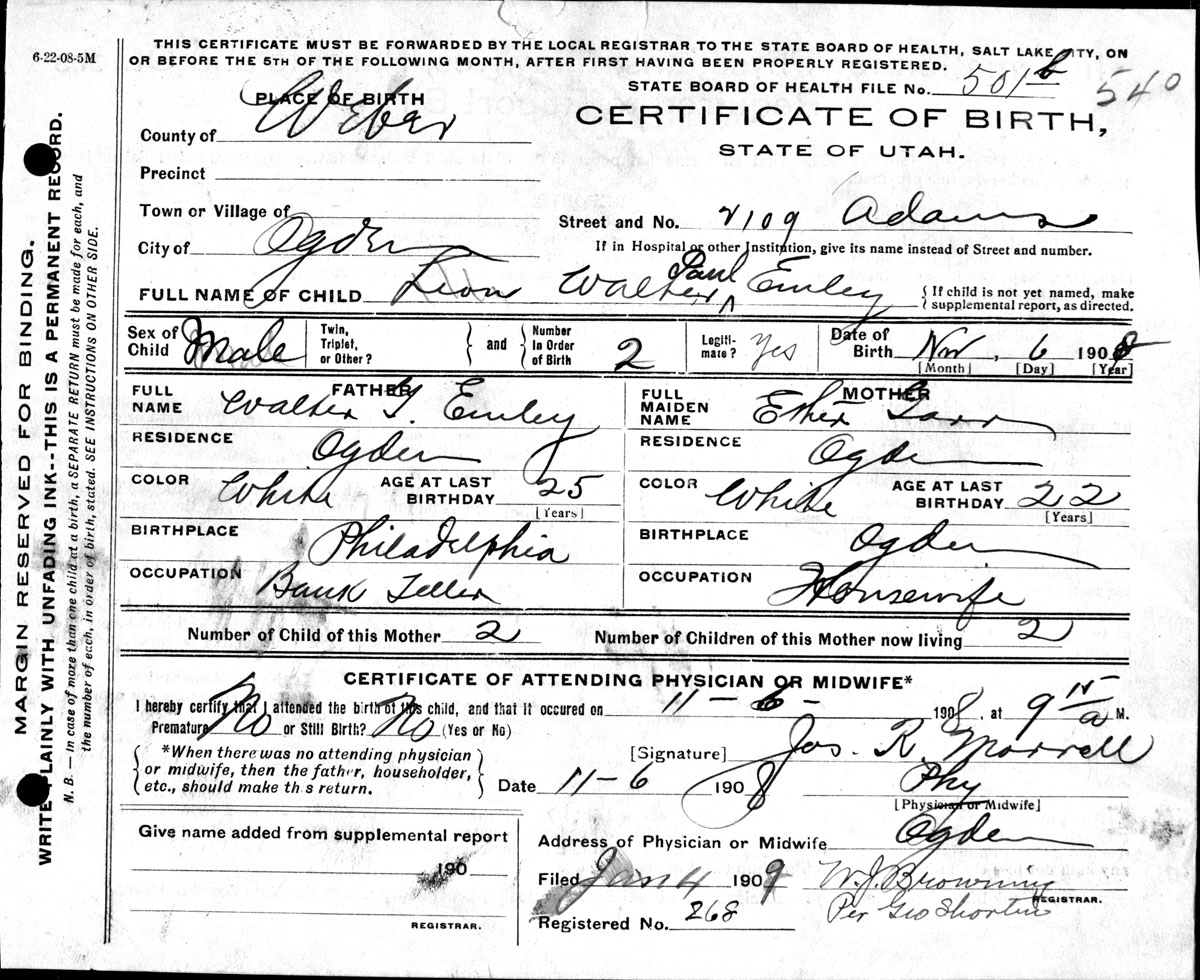 6-22-08-5M
THIS CERTIFICATE MUST BE FORWARDED BY THE LOCAL REGISTRAR TO THE STATE BOARD OF HEALTH, SALT LAKE CITY, ON
OR BEFORE THE 5TH OF THE FOLLOWING MONTH, AFTER FIRST HAVING BEEN PROPERLY REGISTERED.
STATE BOARD OF HEALTH FILE No. 501 b 540
CERTIFICATE OF BIRTH,
STATE OF UTAH.
PLACE OF BIRTH
County of Weber
Precinct
Town or Village of
City of Ogden
Street and No. 2109 Adams
If in Hospital or other Institution, give its name instead of Street and number.
FULL NAME OF CHILD Walter Paul Emley
If child is not yet named, make
supplemental report, as directed.
Sex of Child Male
Twin, Triplet, or Other?
and
Number in Order of Birth 2
Legiti-mate? Yes
Date of Birth Nov. 6 1908
[Month] [Day] [Year]
FATHER
FULL NAME Walter Emley
RESIDENCE Ogden
COLOR White AGE AT LAST BIRTHDAY 25
[Years]
BIRTHPLACE Philadelphia
OCCUPATION Bank Teller
MOTHER
FULL MAIDEN NAME Esther
RESIDENCE Ogden
COLOR White AGE AT LAST BIRTHDAY 22
[Years]
BIRTHPLACE Ogden
OCCUPATION Housewife
Number of Child of this Mother 2 Number of Children of this Mother now living 2
CERTIFICATE OF ATTENDING PHYSICIAN OR MIDWIFE*
I hereby certify that I attended the birth of this child, and that it occured on 11-6- 1908, at 9 a M.
Premature No or Still Birth? No (Yes or No)
*When there was no attending physician
or midwife, then the father, householder,
etc., should make this return.
[Signature] Jos. R. Morrell
Date 11-6 1908 Phy
[Physician or Midwife]
Address of Physician or Midwife Ogden
Give name added from supplemental report
190
REGISTRAR.
Filed Jan 4 1909 W. J. Browning
REGISTRAR.
Per Geo Shorten
Registered No. 268
MARGIN RESERVED FOR BINDING.
WRITE PLAINLY WITH UNFADING INK--THIS IS A PERMANENT RECORD.
N. B.—In case of more than one child at a birth, a SEPARATE RETURN must be made for each, and
the number of each, in order of birth, stated. SEE INSTRUCTIONS ON OTHER SIDE.